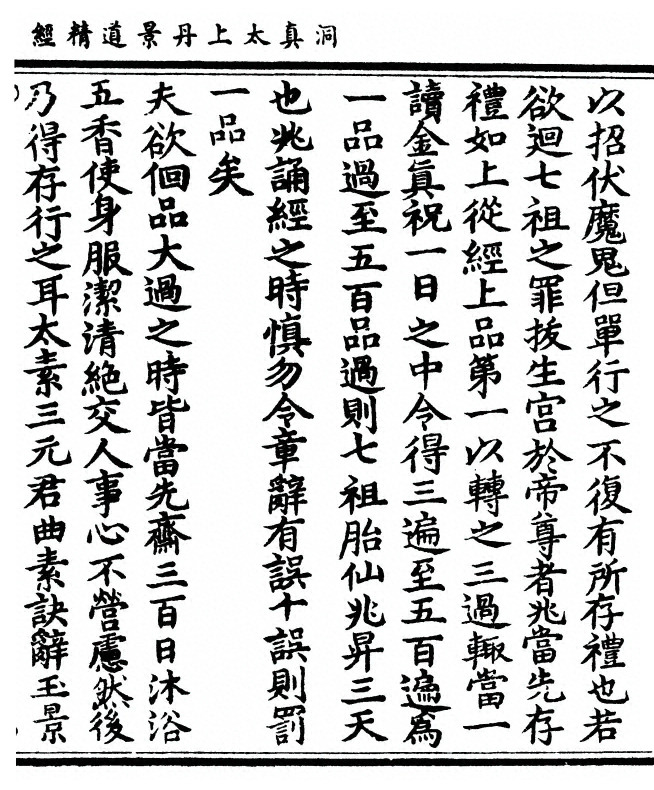 洞真太上丹景道精經
以招伏魔鬼但單行之不復有所存禮也若
欲迴七祖之罪拔生宮於帝尊者兆當先存
禮如上從經上品第一以轉之三過輙當一
讀金真祝一日之中令得三遍至五百遍為
一品過至五百品過則七祖胎仙兆昇三天
也兆誦經之時慎勿令章辭有誤十誤則罰
一品矣
夫欲佪品大過之時皆當先齋三百日沐浴
五香使身服潔清絶交人事心不營慮然後
乃得存行之耳太素三元君曲素訣辭玉景